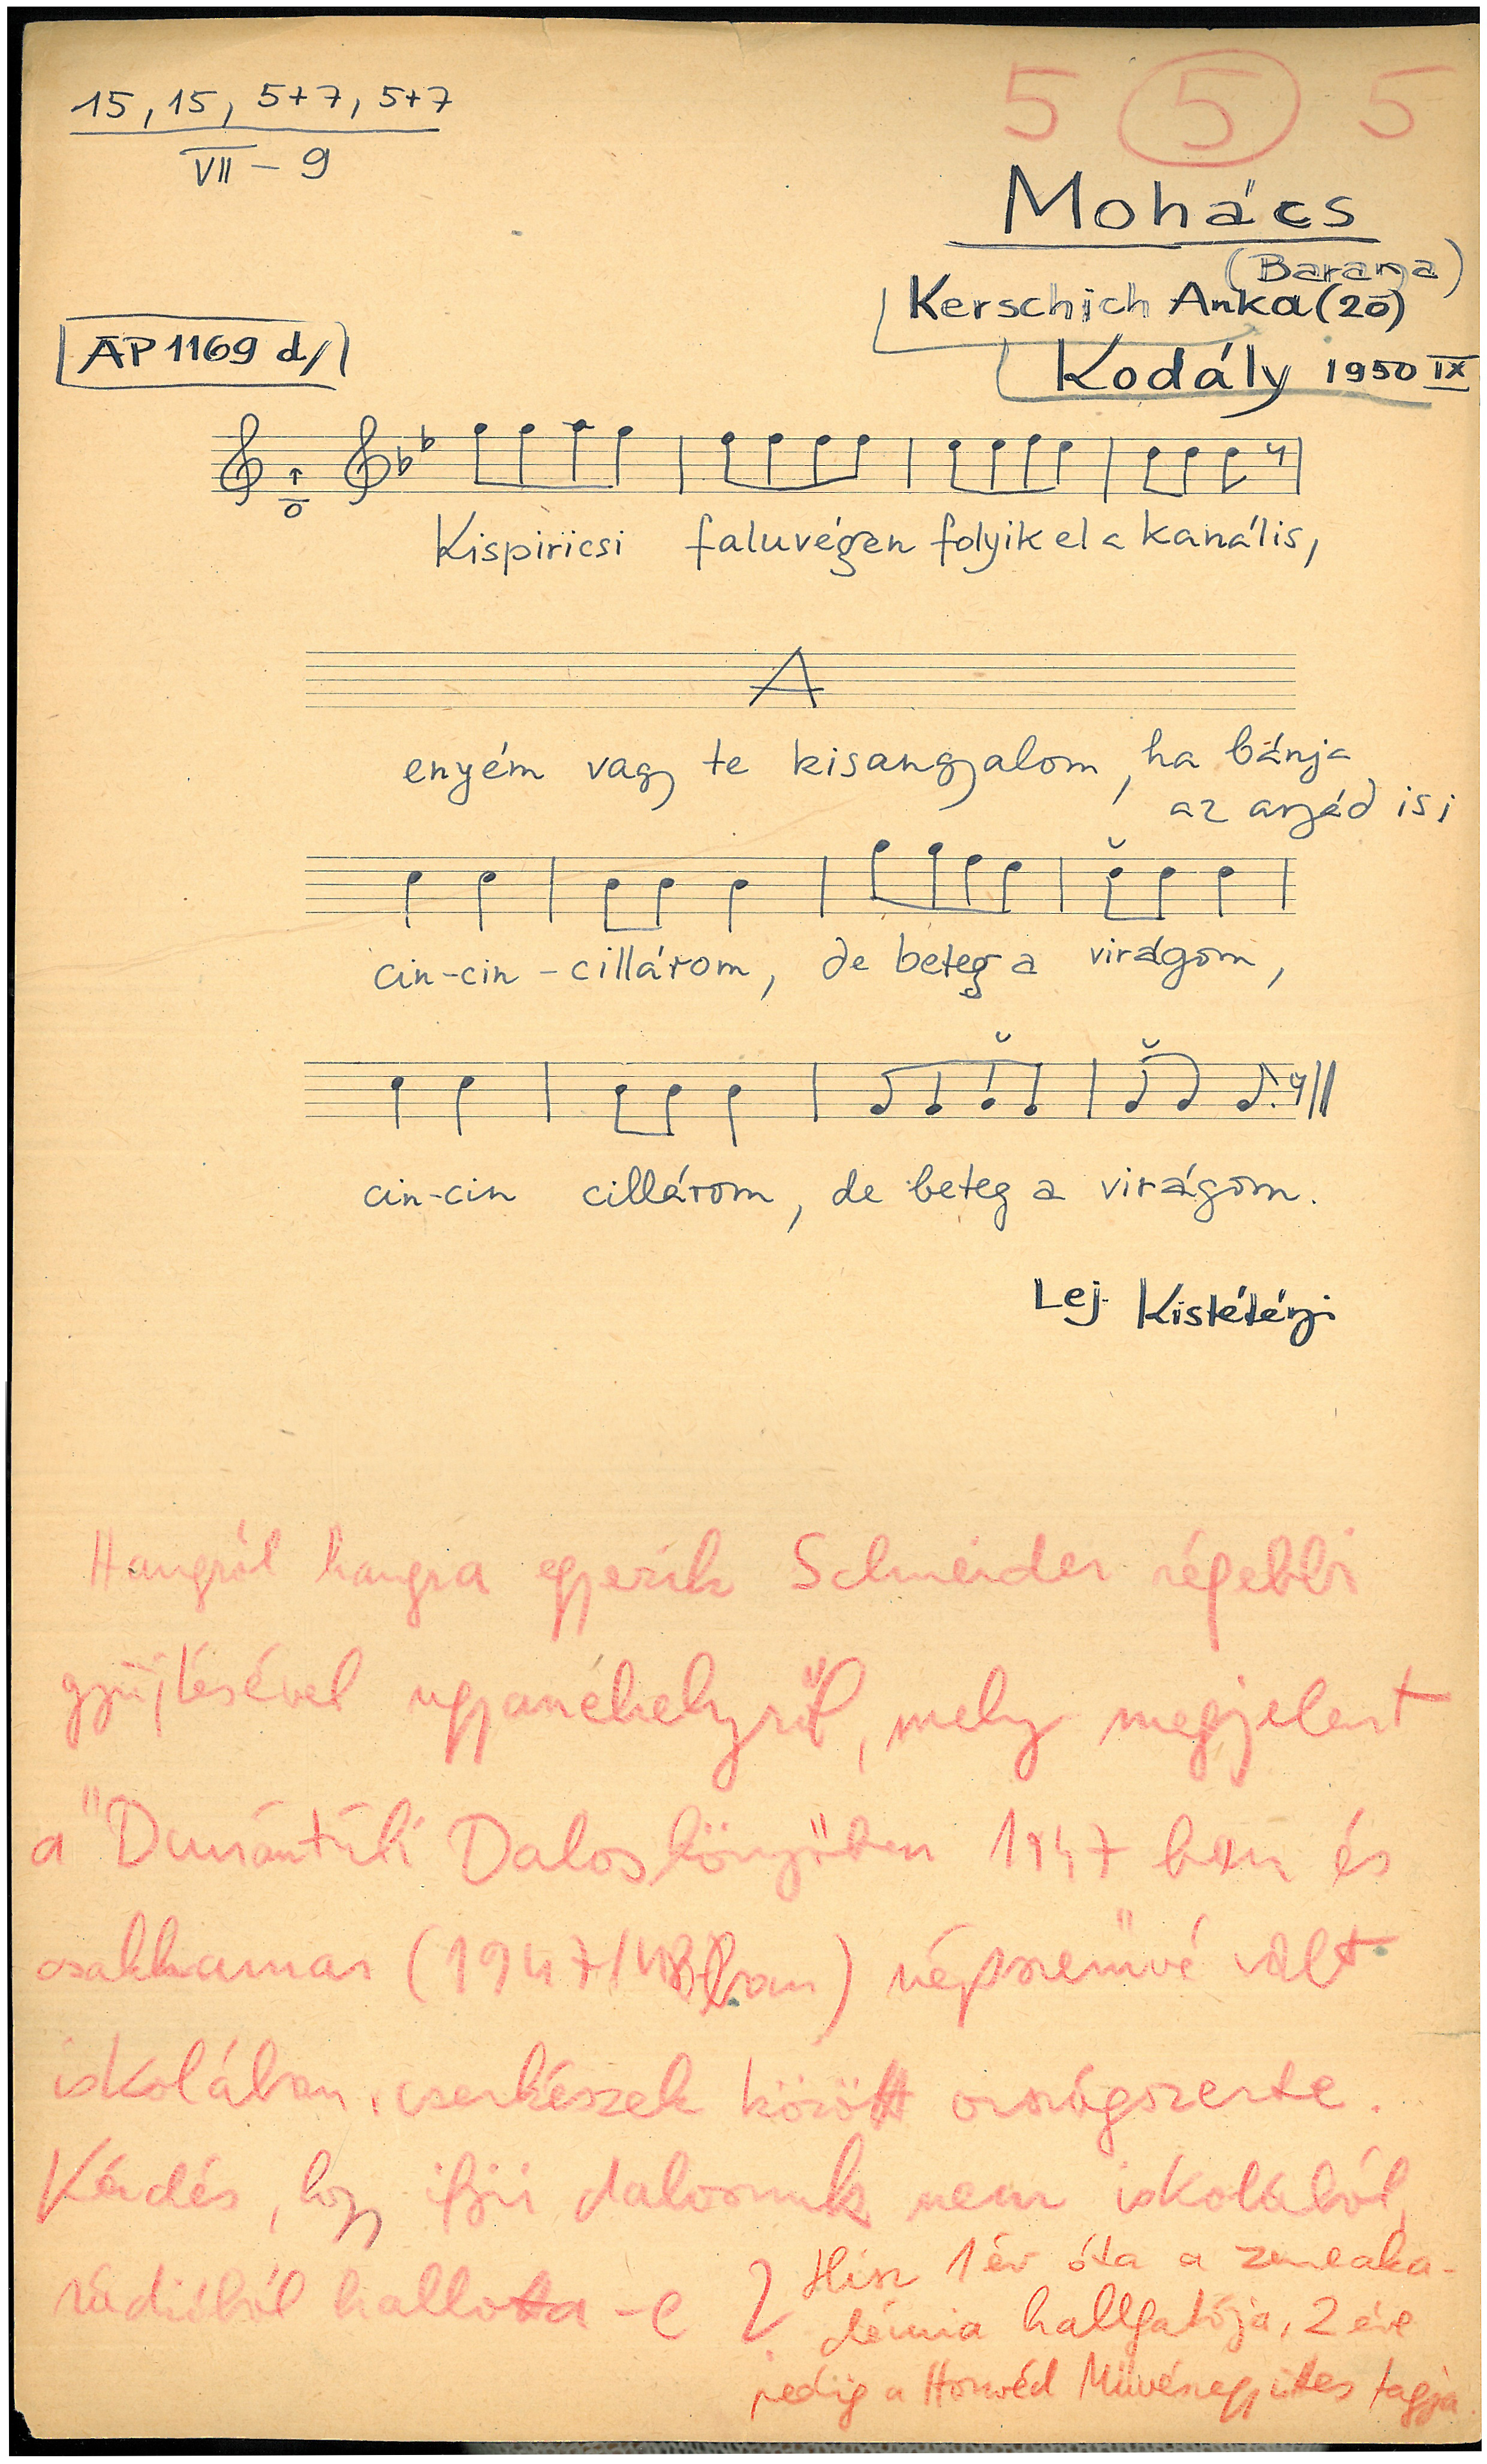 15, 15, 5+7, 5+7
VII – 9
5 5 5
Mohács
(Baranya)
Kerschich Anka (20)
AP 1169 d/
Kodály 1950 IX
Kispiricsi faluvégen folyik el a kanális,
A
enyém vagy te kisangyalom, ha bánja
az anyád is;
cin-cin-cillárom, de beteg a virágom,
cin-cin cillárom, de beteg a virágom.
Lej. Kistétényi
Hangról hangra egyezik Schneider régebbi
gyüjtésével ugyanehelyről, mely megjelent
a "Dunántúli Daloskönyvben 1947 ben és
csakhamar (1947/48ban) népszerüvé vált
iskolában, cserkészek között országszerte.
Kérdés, hogy ifjú dalosunk nem iskolából,
rádióból hallotta-e ?
Hisz 1 év óta a zeneaka-
démia hallgatója, 2 éve
pedig a Honvéd Müvészegyüttes tagja.